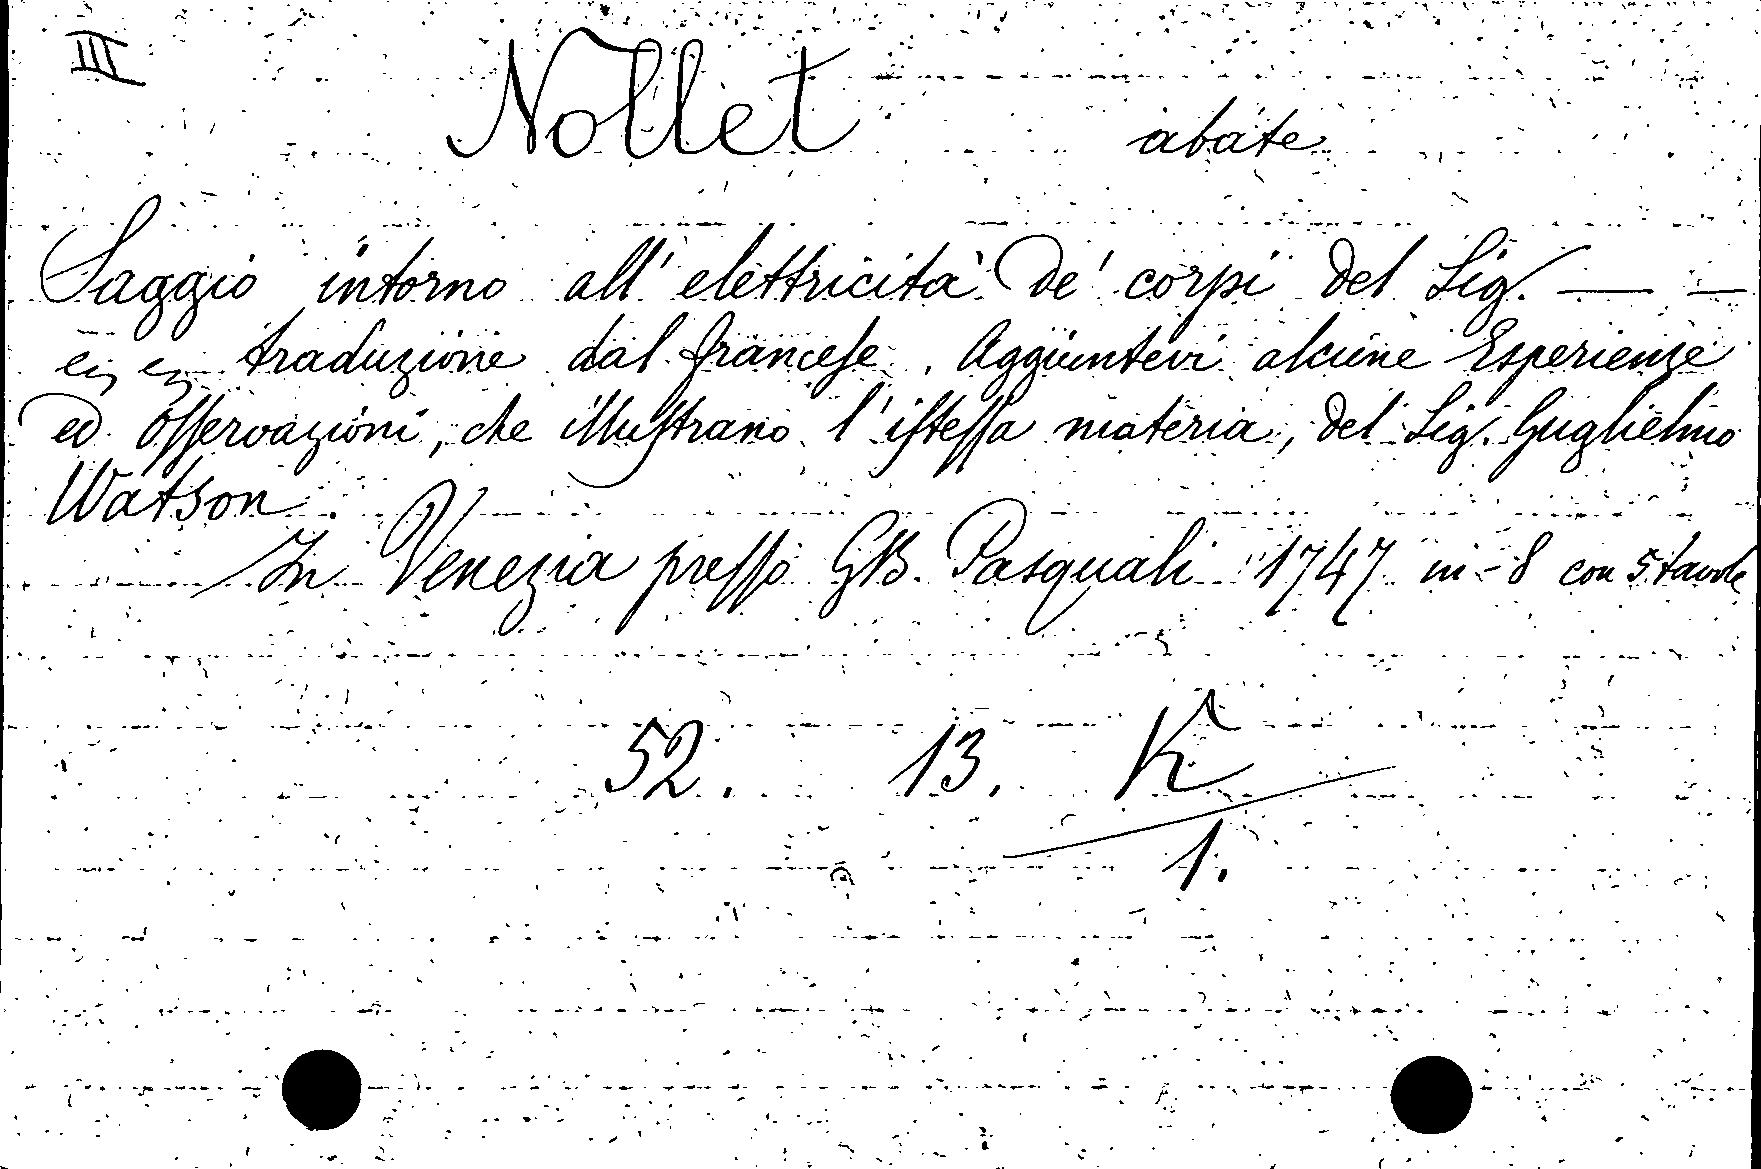 III
Nollet abate
Saggio intorno all' elettricità de' corpi del Sig. — —
traduzione dal franceſe. Aggiuntevi alcune Esperienze
ed oſſervazioni, che illuſtrano l' iſteſſa materia, del Sig. Guglielmo
Watson.
In Venezia preſſo GB. Pasquali 1747 in-8 con 5 tavole
52. 13. K
1.